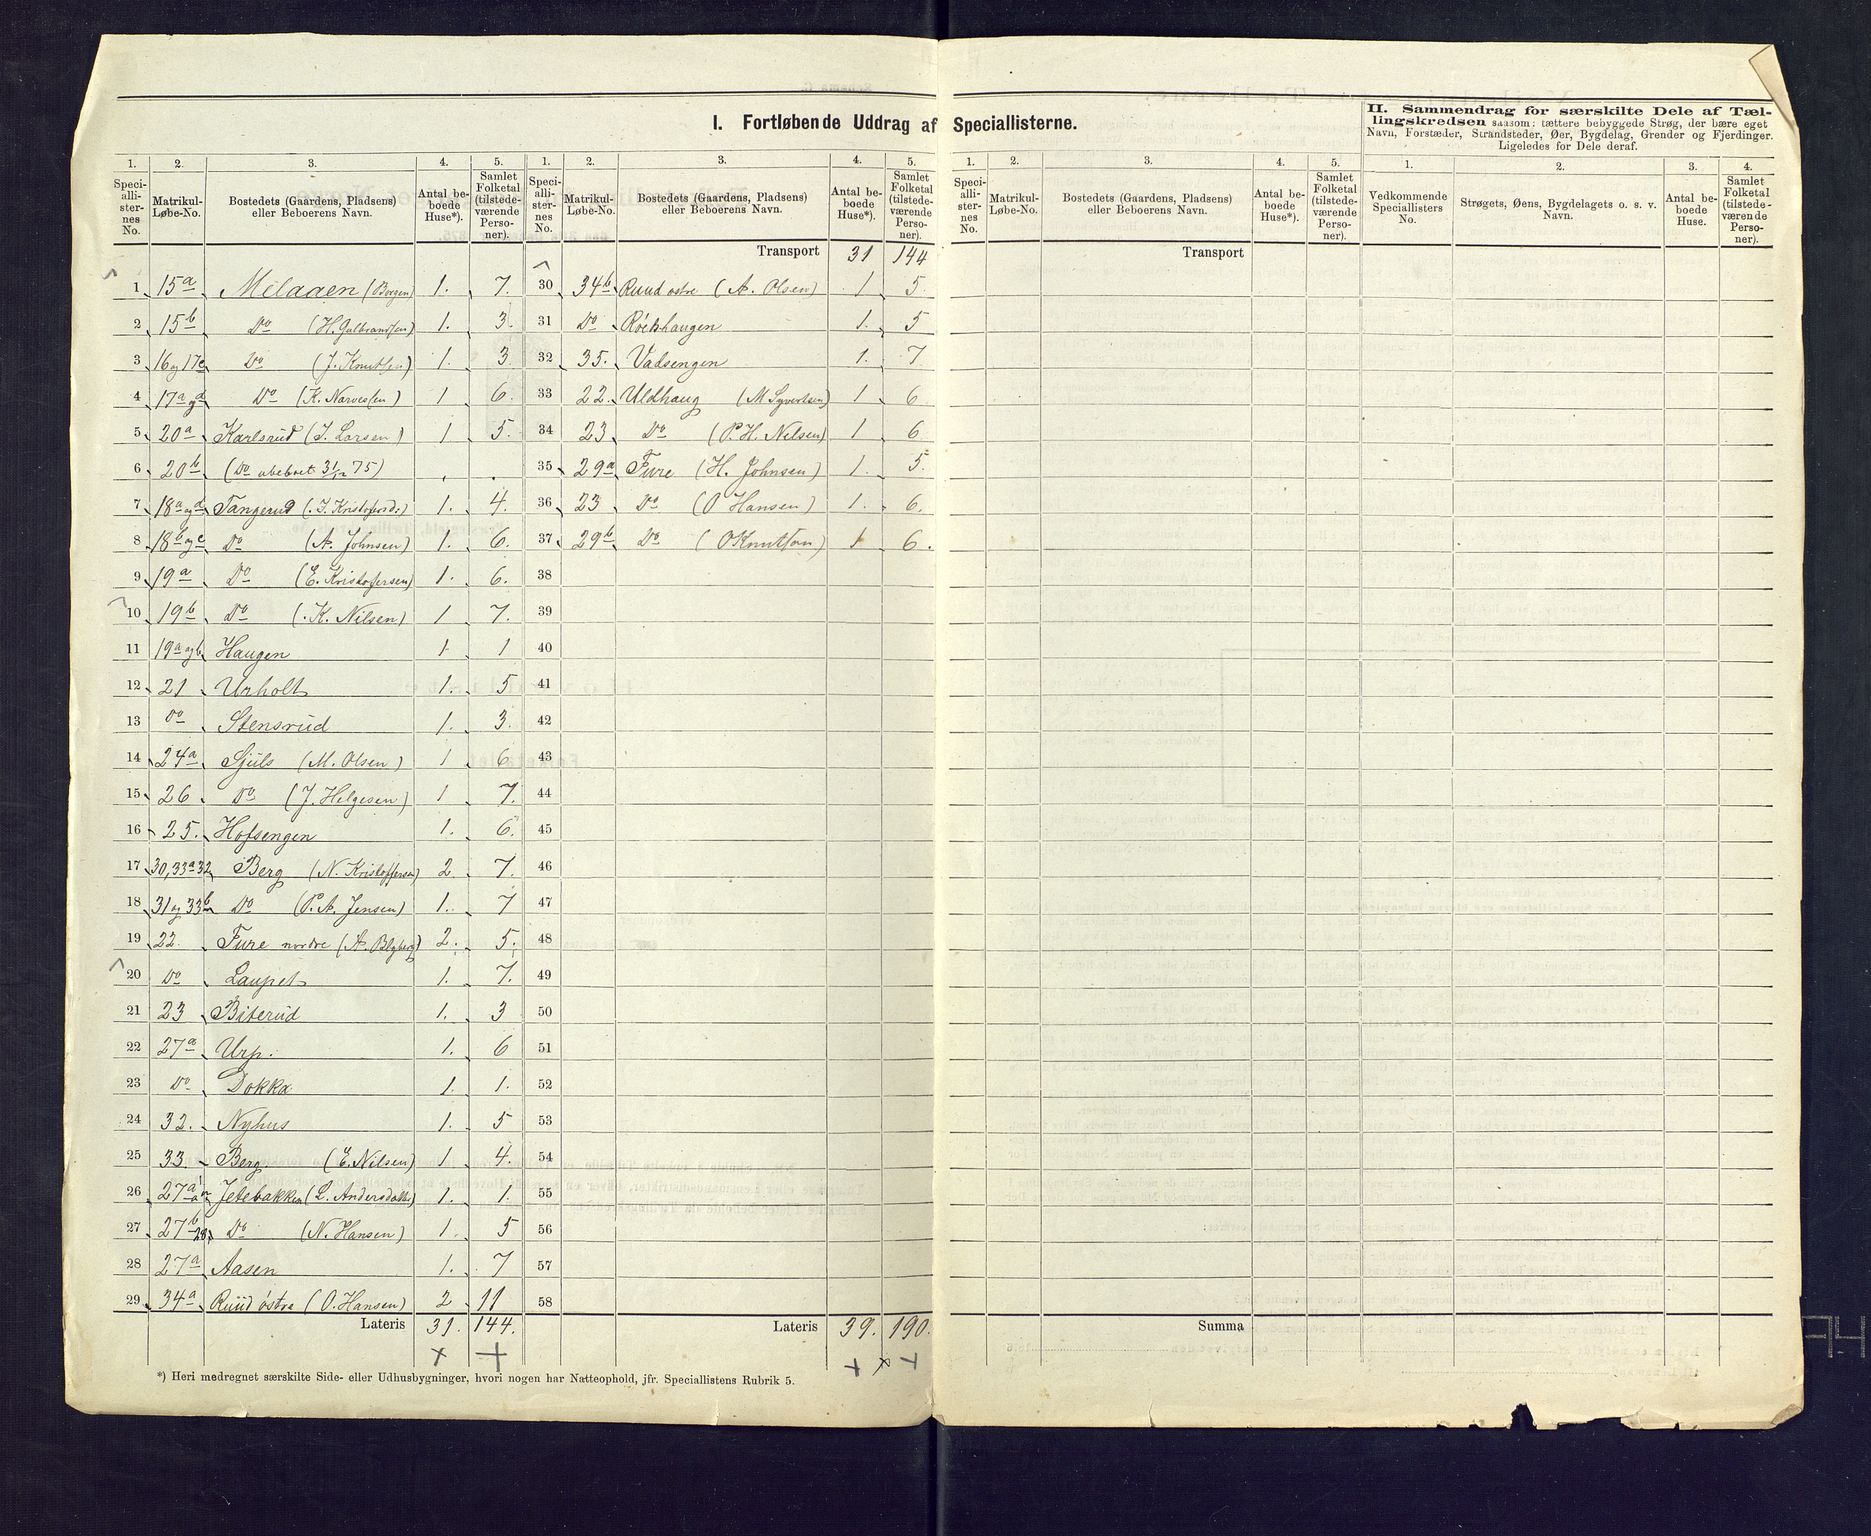 I. Fortløbende Uddrag af Speciallisterne.
II. Sammendrag for særskilte Dele af Tæl-
lingskredsen saasom; tættere bebyggede Strøg, der bære eget
Navn, Forstæder, Strandsteder, Øer, Bygdelag, Grender og Fjerdinger.
Ligeledes for Dele deraf.
1. 2. 3. 4. 5. 1. 2. 3. 4. 5. 1. 2. 3. 4. 5. 1. 2. 3. 4.
Speciallisternes No. Matrikul-Løbe-No. Bostedets (Gaardens, Pladsens) eller Beboerens Navn. Antal beboede Huse*). Samlet Folketal (tilstedeværende Personer).
Speciallisternes No. Matrikul-Løbe-No. Bostedets (Gaardens, Pladsens) eller Beboerens Navn. Antal beboede Huse*). Samlet Folketal (tilstedeværende Personer).
Speciallisternes No. Matrikul-Løbe-No. Bostedets (Gaardens, Pladsens) eller Beboerens Navn. Antal beboede Huse*). Samlet Folketal (tilstedeværende Personer).
Vedkommende Speciallisters No. Strøgets, Øens, Bygdelagets o. s. v. Navn. Antal beboede Huse. Samlet Folketal (tilstedeværende Personer).
1 15a Melaaen (Borgen) 1. 7.
2 15b Do (H. Gulbrandsen) 1. 3.
3 16 og 17c Do (J. Knutsen) 1. 3
4 17a og d Do (K. Narvesen) 1 6.
5 20a Karlsrud (J. Larsen) 1 5.
6 20b (Do ubeboet 31/12 75) . .
7 18a og d Tangerud (J. Kristofersd:) 1. 4.
8 18b og c Do (A. Johnsen) 1. 6.
9 19a Do (E. Kristofersen) 1. 6.
10 19b Do (K. Nilsen) 1 7.
11 19a og b Haugen 1 1
12 21 Urholt 1. 5
13 Do Stensrud 1. 3.
14 24a Sjuls (M. Olsen) 1 6
15 26 Do (J. Helgesen) 1 7.
16 25. Hofsengen 1. 6.
17 30, 33a 32 Berg (N. Kristoffersen) 2 7.
18 31 og 33b Do (P. A. Jensen) 1. 7
19 22. Fure nordre (A. Blyberg) 2. 5.
20 Do Laupet 1. 7.
21 23 Biterud 1. 3
22 27a Urp. 1. 6
23 Do Dokka 1. 1.
24 32. Nyhus 1. 5
25 33. Berg (E. Nilsen) 1 4.
26 27a Jetebakken (L. Andersdatter) 1. 1.
27 27b 28 Do (N. Hansen) 1. 5
28 27a Aasen 1. 7
29 34a Ruud østre (O. Hansen) 2 11
Lateris 31. 144.
Transport 31 144
30 34b Ruud østre (A. Olsen) 1 5.
31 Do Röishaugen 1. 5
32 35. Vadsengen 1. 7
33 22. Uldhaug (M Syvertsen) 1 6
34 23 Do (P. H. Nilsen) 1 6
35 29a Fure (H. Johnsen) 1. 5.
36 23 Do (O Hansen) 1. 6.
37 29b Do (O Knutson) 1 6.
38
39
40
41
42
43
44
45
46
47
48
49
50
51
52
53
54
55
56
57
58
Lateris 39. 190.
Transport
Summa
*) Heri medregnet særskilte Side- eller Udhusbygninger, hvori nogen har Natteophold, jfr. Speciallistens Rubrik 5.